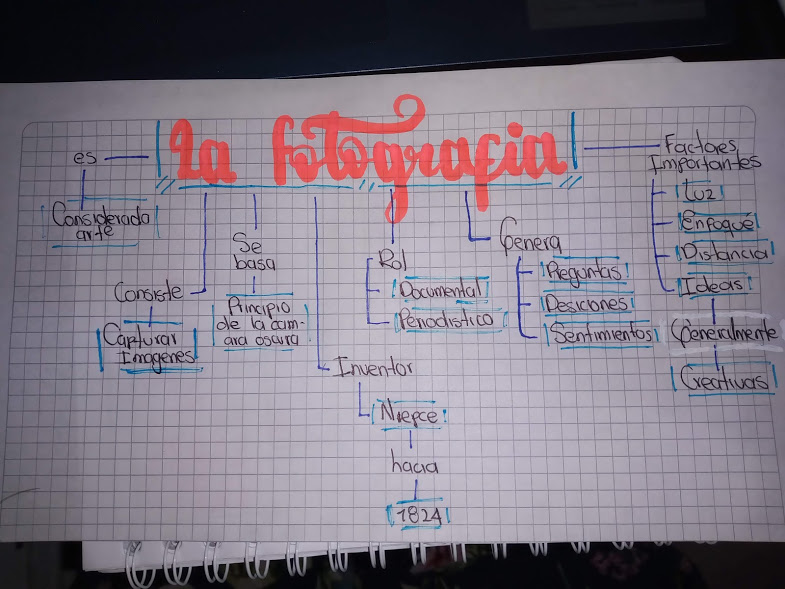 La fotografia
es
Considerado
arte
Consiste
Capturar
Imagenes
Se
basa
Principio
de la cam-
ara oscura
Inventor
Niepce
hacia
1824
Rol
Documental
Periodistico
Genera
Preguntas
Desiciones
Sentimientos
Factores
Importantes
Luz
Enfoque
Distancia
Ideas
Generalmente
Creativas